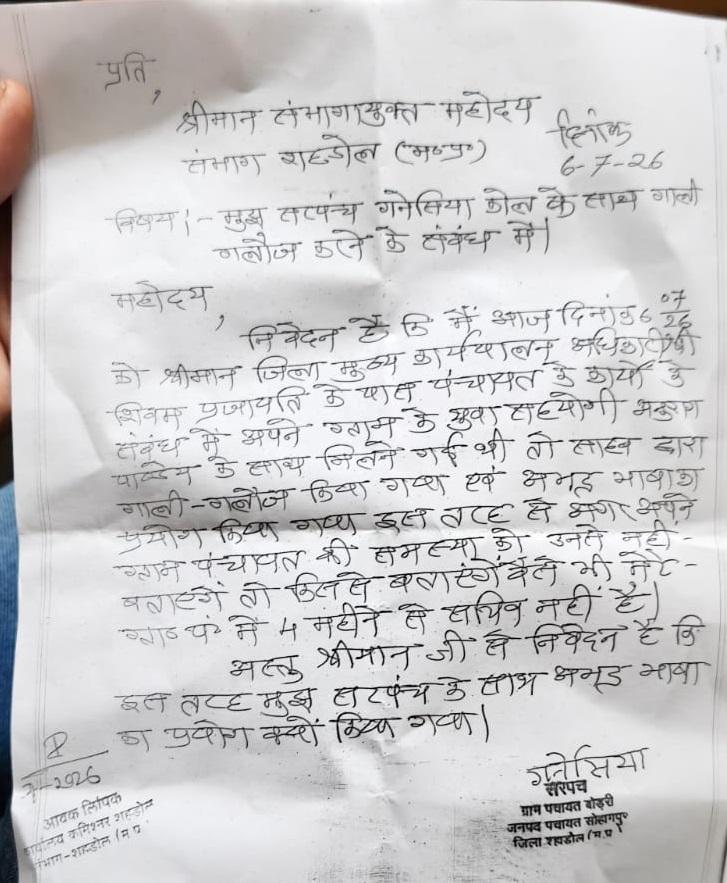 प्रति,
श्रीमान संभागायुक्त महोदय
संभाग शहडोल (म०प्र०)
दिनांक
6-7-26
विषय:- मुझ सरपंच गनेसिया कोल के साथ गाली
गलौज करने के संबंध में।
महोदय,
निवेदन है कि मैं आज दिनांक 6 07 26
को श्रीमान जिला मुख्य कार्यपालन अधिकारी श्री
शिवम प्रजापति के पास पंचायत के कार्यों के
संबंध में अपने ग्राम के युवा सहयोगी अनुराग
पाण्डेय के साथ मिलने गई थी तो साहब द्वारा
गाली-गलौज किया गया एवं अभद्र भाषा का
प्रयोग किया गया इस तरह से अगर अपने
ग्राम पंचायत की समस्या को उनसे नही-
बताएंगें तो किससे बताएंगें वैसे भी मेरे-
ग्रा० पं० में 4 महीने से सचिव नहीं है।
अस्तु श्रीमान जी से निवेदन है कि
इस तरह मुझ सरपंच के साथ अभद्र भाषा
का प्रयोग क्यों किया गया।
गनेसिया
सरपंच
ग्राम पंचायत बोड़री
जनपद पंचायत सोहागपुर
जिला शहडोल (म.प्र.)
2026
आवक लिपिक
कार्यालय कमिश्नर शहडोल
संभाग-शहडोल (म.प्र.